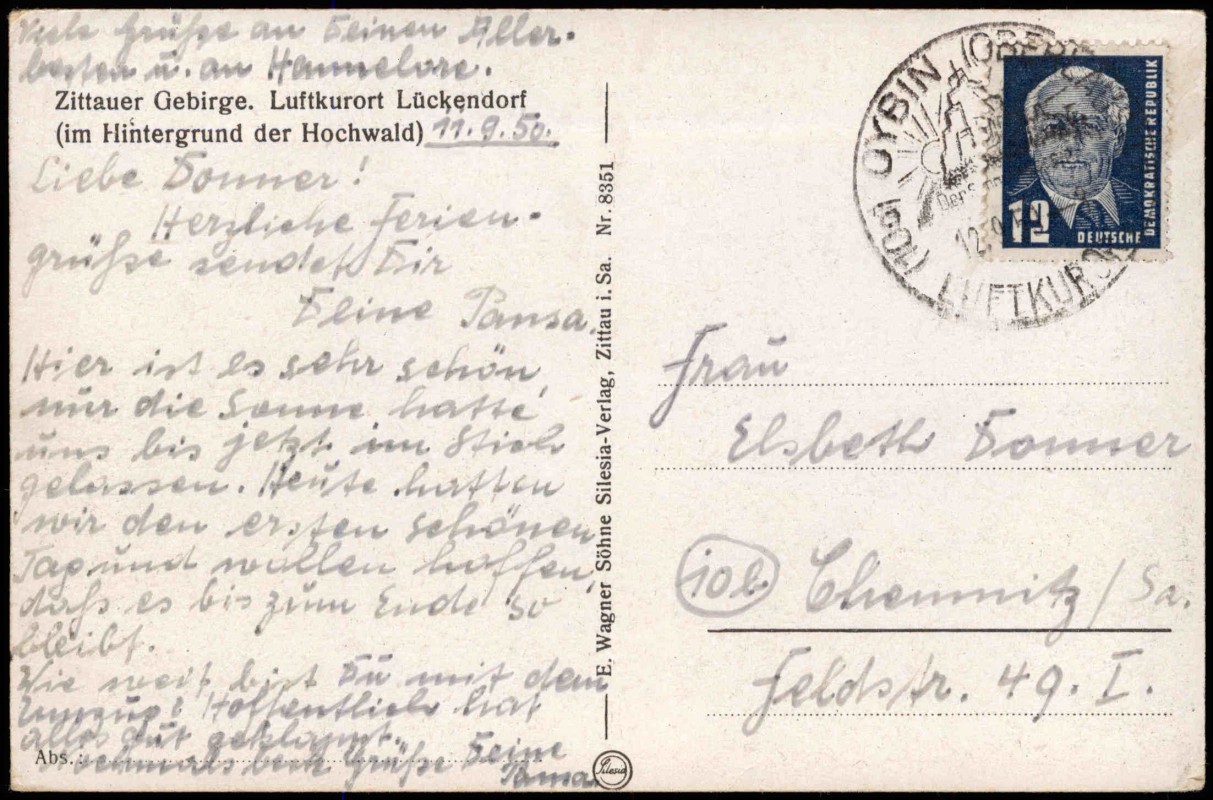 Viele Grüße an Deinen Aller-
besten u. an Hannelore.
Zittauer Gebirge. Luftkurort Lückendorf
(im Hintergrund der Hochwald) 11.9.50.
Liebe Donner!
Herzliche Ferien-
grüße sendet Dir
Deine Pansa.
Hier ist es sehr schön,
nur die Sonne hatte
uns bis jetzt im Stich
gelassen. Heute hatten
wir den ersten schönen
Tag und wollen hoffen,
daß es bis zum Ende so
bleibt.
Wie weit bist Du mit dem
Umzug? Hoffentlich hat
alles gut geklappt.
Abs.:
Nochmals Grüße Deine
Pansa.
E. Wagner Söhne Silesia-Verlag, Zittau i. Sa. Nr. 8351
Silesia
(10a) OYBIN (OBERLAUS
LUFTKURORT
12
DEUTSCHE
DEMOKRATISCHE REPUBLIK
Frau
Elsbeth Donner
10b Chemnitz/Sa.
Feldstr. 49. I.